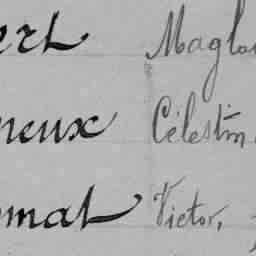 ert Maglo
neux Célestin
mat Victor,